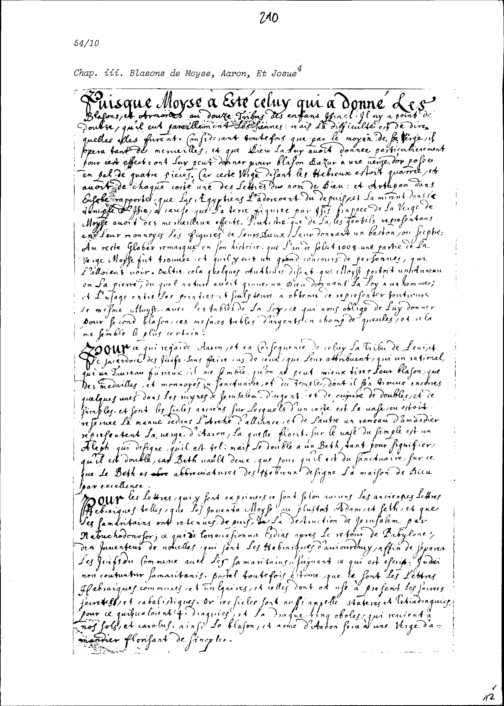 210
54/10
Chap. iii. Blasons de Moyse, Aaron, Et Josue 4
Puisque Moyse à Este celuy qui a donné Les
Blasons, et Armories au douze Tribus des enfans d'Israel. Il n'y a point de
doubte, qu'il eut pareillement Les siennes: mais La difficulté est de dire
quelles elles furent. Considerant toutefois que par le moyen de la Verge, il
opera tant de merveilles, et que Dieu La luy avoit donnée particulierement
pour cest effect on Luy peut donner pour blason dazur a une verge dor posée
en pal de quatre pieces. Car ceste Verge disent les Hebreux estoit quarrée, et
avoit de chaque costé une des Lettres du nom de Dieu: et Artapan dans
Eusebe rapporte, que Les Egyptiens L'adorerent du depuis, et La mirent dans le
temple d'Isis, a cause que La terre figurée par Isis frappée de La Verge de
Moyse avoit des merveilleux effects. Peut estre que de La les gentils representans
en leur monnoyes Les figures de leurs Dieux, Leur donnoient un baston, ou sceptre,
Au reste Glaber remarque en son histoire, que l'an de salut 1008 une partie de La
Verge Moyse fut trouvée: et qu'il y eut un grand concours de personnes, que
l'alloient voir. Oultre cela quelques Autheurs disent que Moyse portoit un anneau
en La pierre, du quel nature avoit gravée un Dieu donnant La Loy aux hommes;
et L'usage entre Les peintres, et sculpteurs a obtenu de representer tousiours
le mesme Moyse avec les tables de La Loy, ce qui nous oblige de Luy donner
pour second blason, ces mesmes tables d'argent en champ de gueules, et cela
me semble le plus certain.
Pour ce qui regarde Aaron, et en consequence de celuy La Tribu de Levi, et
le sacerdoce des Juifs sans faire cas de ceux, que leur attribuent, qui un rational,
qui un Taureau furieux, il me semble, qu'on ne peut mieux tirer Leur blason, que
des medailles, et monnoyes du sanctuaire, et du Temple, dont il s'en trouve encores
quelques unes dans Les ruynes de Jerusalem d'argent, et de cuyvre de doubles, et de
simples, et sont les sicles anciens sur Lesquels d'un costé est Le vase, ou estoit
reservée La manne dedans L'arche d'alliance, et de L'autre un rameau d'amandier
representent La verge d'Aaron, La quelle florit. Sur le vase du simple est un
Aleph qui designe, qu'il est tel: mais Le double a un Beth, tant pour signifier,
qu'il est double, car Beth vault deux, que pour qu'il est du sanctuaire, sur ce
que Le Beth es abbreviatures des Hebreux designe La maison de Dieu
par excellence.
Pour les Lettres, qui y sont exprimées ce sont selon aucuns Les anciennes Lettres
Hebraiques telles, que Les trouverent Moyse ou plustost Adam, et Seth, et que
Les samaritains ont retenues depuis La destruction de Jerusalem par
Nabuchodonosor; ce qui occasionna Esdras apres Le retour de Babylone,
den Inventer de nouvelles, qui sont Les Hebraiques d'auiourdhuy, affin de separer
Les Juifs du commerce avec Les samaritains, suyvant ce qui est escrit: Judei
non coutuntur samaritanis. Postel toutefois estime, que ce sont Les Lettres
Hebraiques communes, et vulgaires, et celles dont on use a present Les sacrées
secretes, et cabalistiques. Or ces sicles sont aussi appellés stateres, et Tetradragmes,
pour ce qu'ils valoient 4 dragmes, et La dragme cinq oboles, qui revient à
nos sols, et carolus. Ainsi Le blason, et arme d'Aaron sera d'une Verge d'a-
mandier florissant de sinople.
12